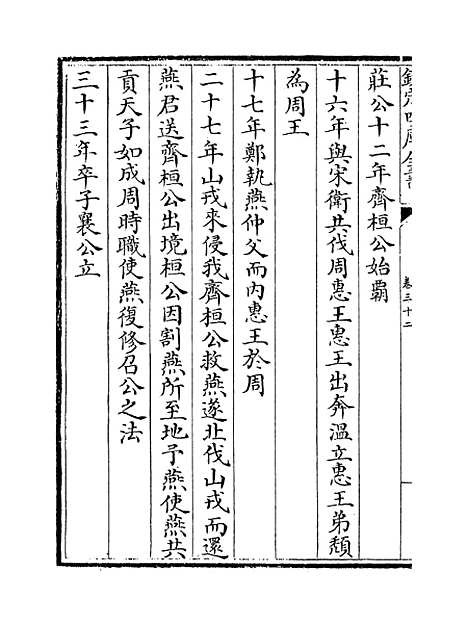 欽定四庫全書
卷三十二
莊公十二年齊桓公始霸
十六年與宋衛共伐周惠王惠王出奔溫立惠王弟頽
為周王
十七年鄭執燕仲父而内惠王於周
二十七年山戎來侵我齊桓公救燕遂北伐山戎而還
燕君送齊桓公出境桓公因割燕所至地予燕使燕共
貢天子如成周時職使燕復修召公之法
三十三年卒子襄公立